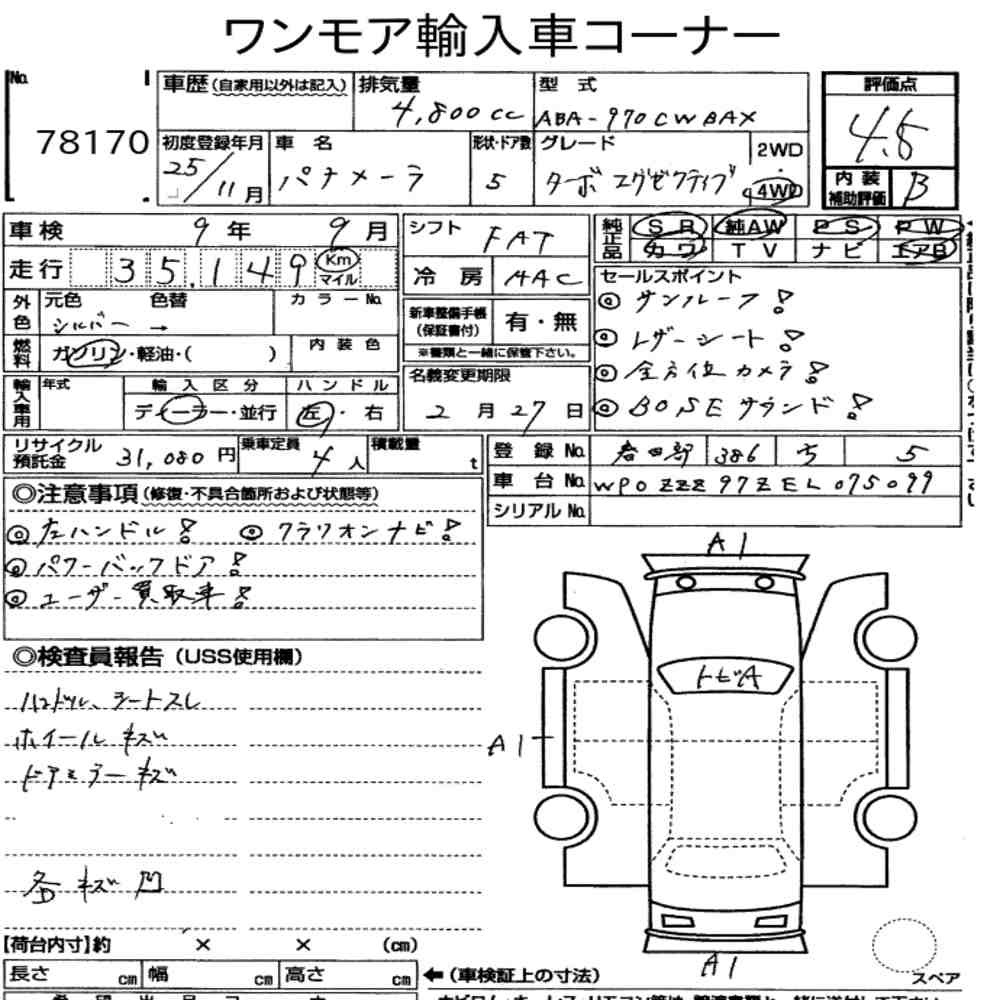 ワンモア輸入車コーナー
No. 78170
車歴(自家用以外は記入) 排気量 4,800cc 型式 ABA-970CWBAX 評価点 4.5
初度登録年月 25/11月 車名 パナメーラ 形状・ドア数 5 グレード ターボ エグゼクティブ 2WD 4WD
内装補助評価 B
車検 9年 9月 シフト FAT 純正品 SR 純AW PS PW
カワ TV ナビ エアB
走行 35,149 Km マイル 冷房 AAC セールスポイント
◎サンルーフ!
外色 元色 シルバー → 色替 カラーNo. 新車整備手帳(保証書付) 有・無
※書類と一緒に保管下さい。
◎レザーシート!
燃料 ガソリン・軽油・( ) 内装色 名義変更期限 2月27日
◎全方位カメラ!
輸入車用 年式 輸入区分 ディーラー・並行 ハンドル 左・右
◎BOSEサウンド!
リサイクル預託金 31,080円 乗車定員 4人 積載量 t
登録No. 春日部 386 ち 5
車台No. WP0ZZZ97ZEL075099
シリアルNo.
◎注意事項(修復・不具合箇所および状態等)
◎左ハンドル! ◎クラリオンナビ!
◎パワーバックドア!
◎ユーザー買取車!
◎検査員報告(USS使用欄)
ハンドル、シートスレ
ホイールキズ
ドアミラーキズ
各キズ凹
A1
トビA
A1
A1
スペア
【荷台内寸】約 × × (cm)
長さ cm 幅 cm 高さ cm ←(車検証上の寸法)